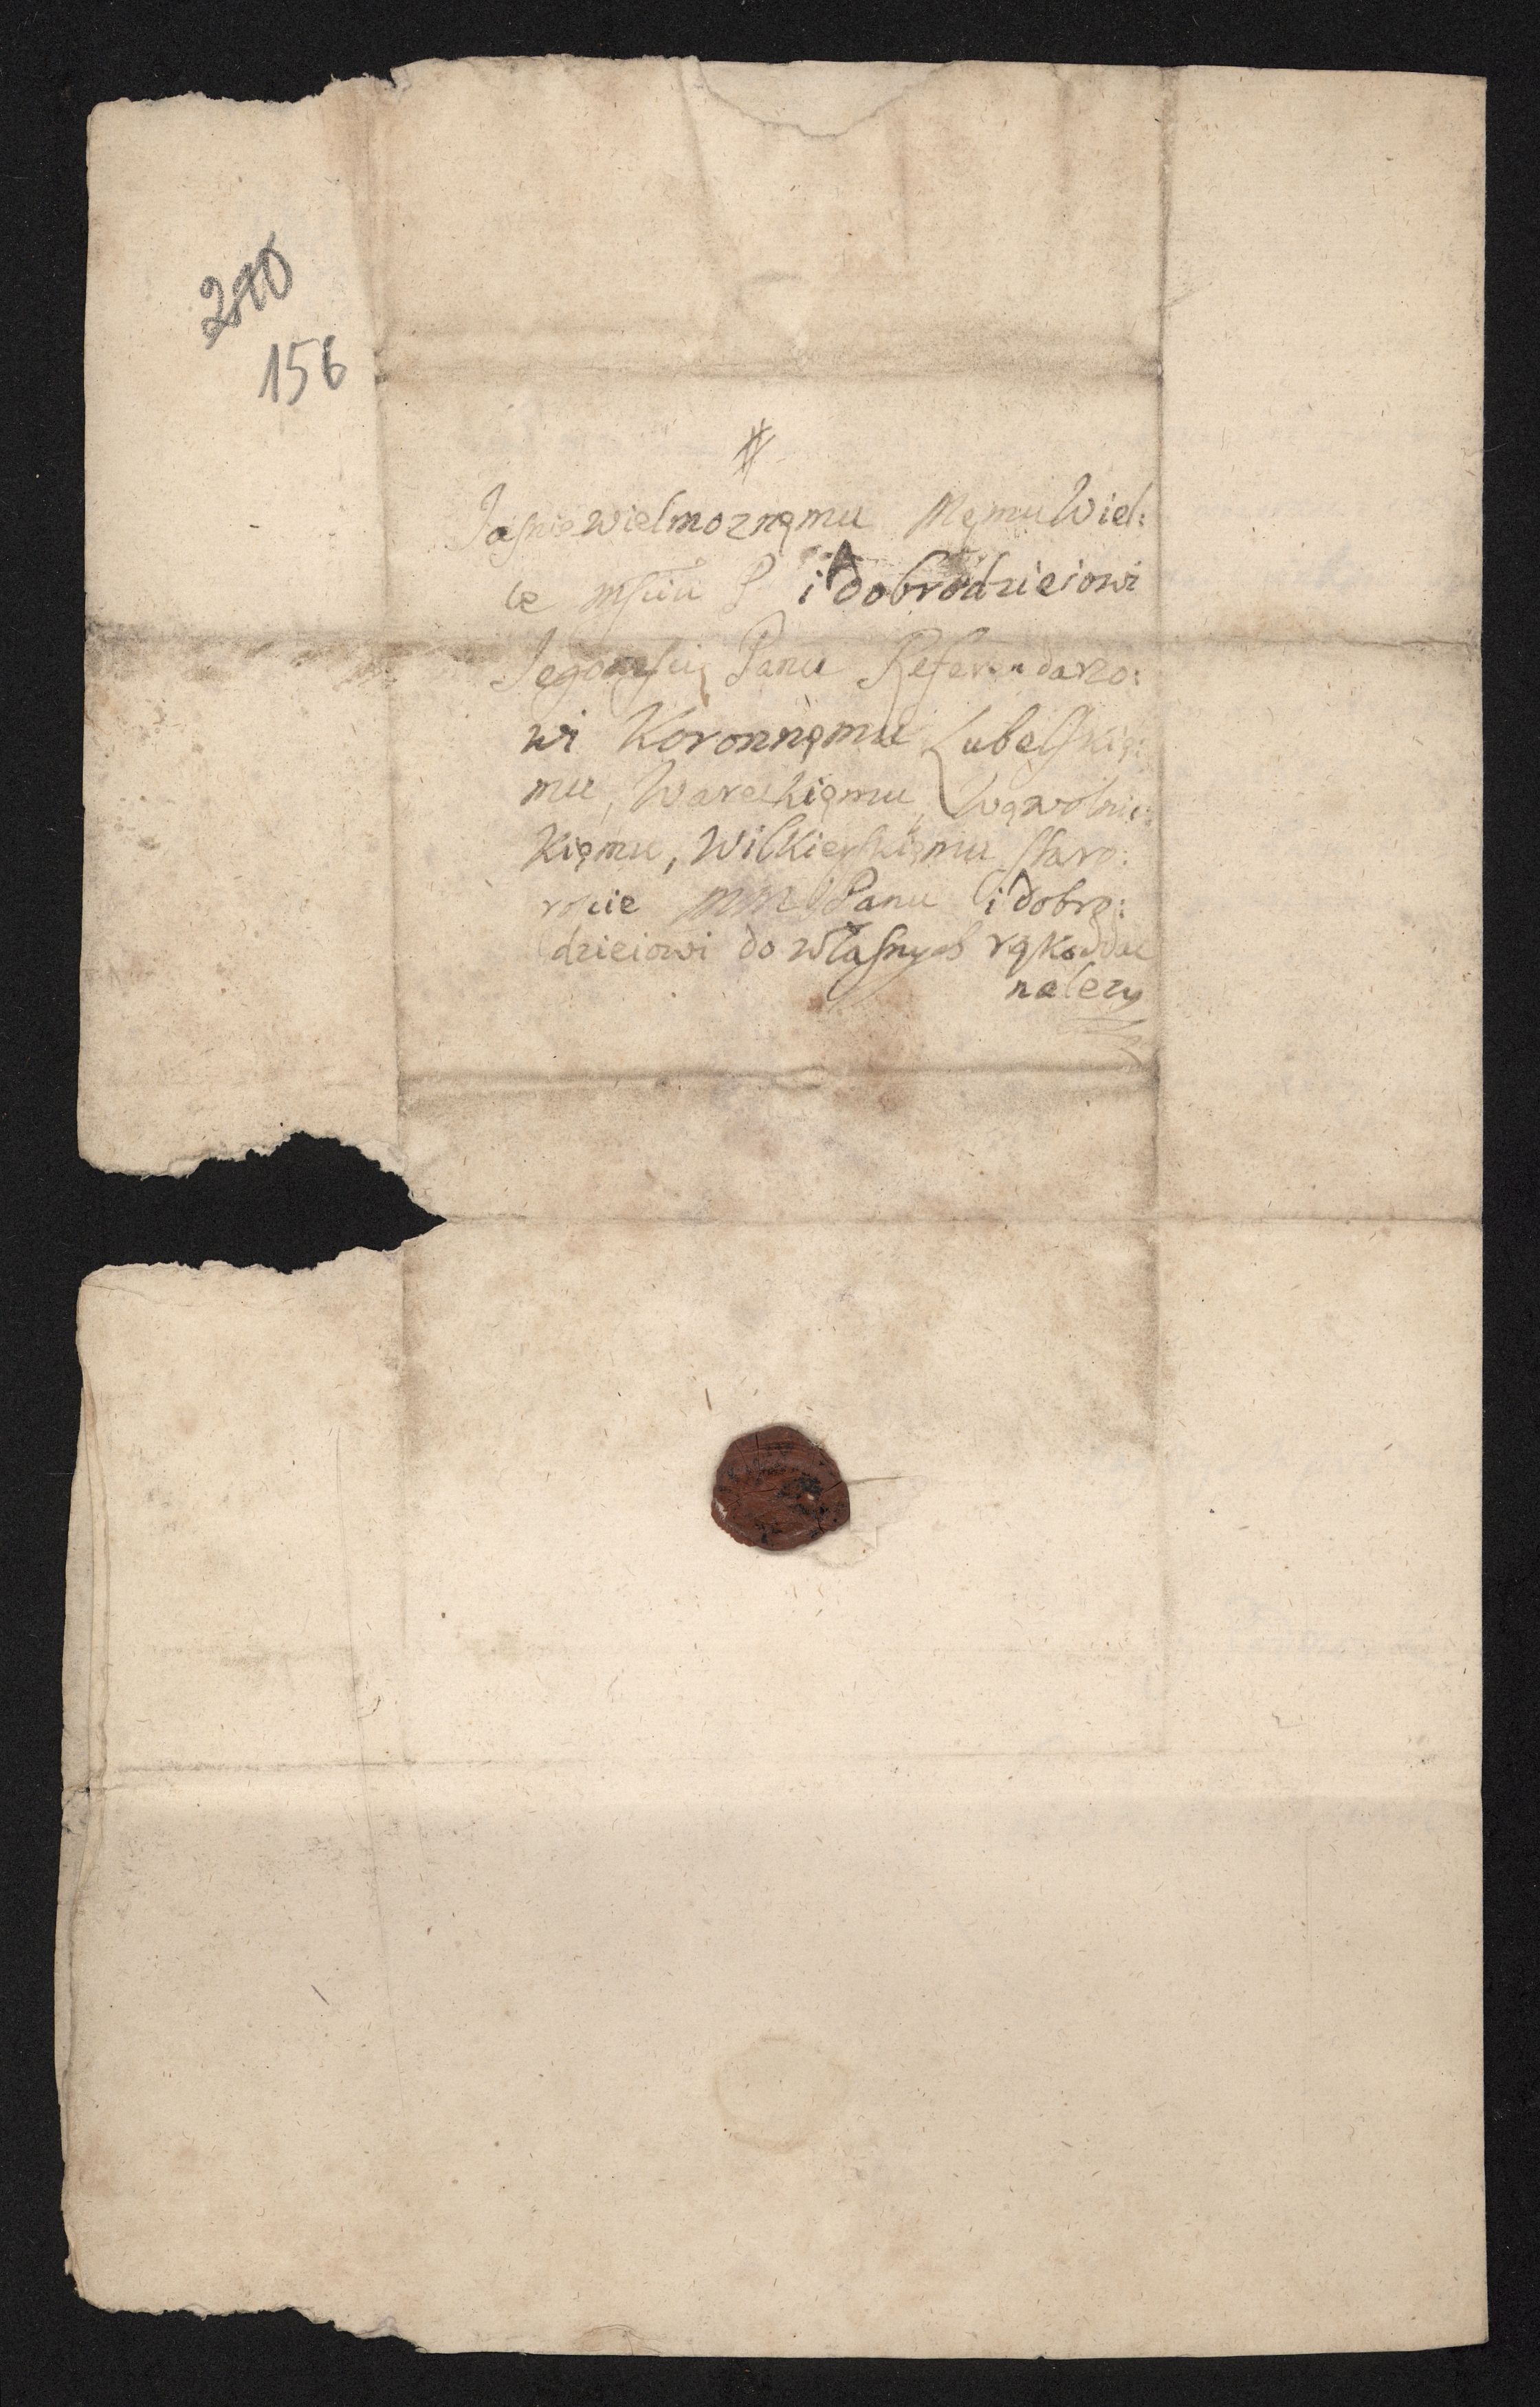 156
#
Jasniewielmoznęmu Męmu Wiel:
ce mściu P i dobrodzieiowi
Jegomścię Panu Referendarzo:
wi Koronnęmu Lubelskię:
mu, Wareckięmu,
kięmu, Wilkieyskięmu staro:
roscie MM Panu i dobro:
dzieiowi do własnych rąk oddac
nalezy